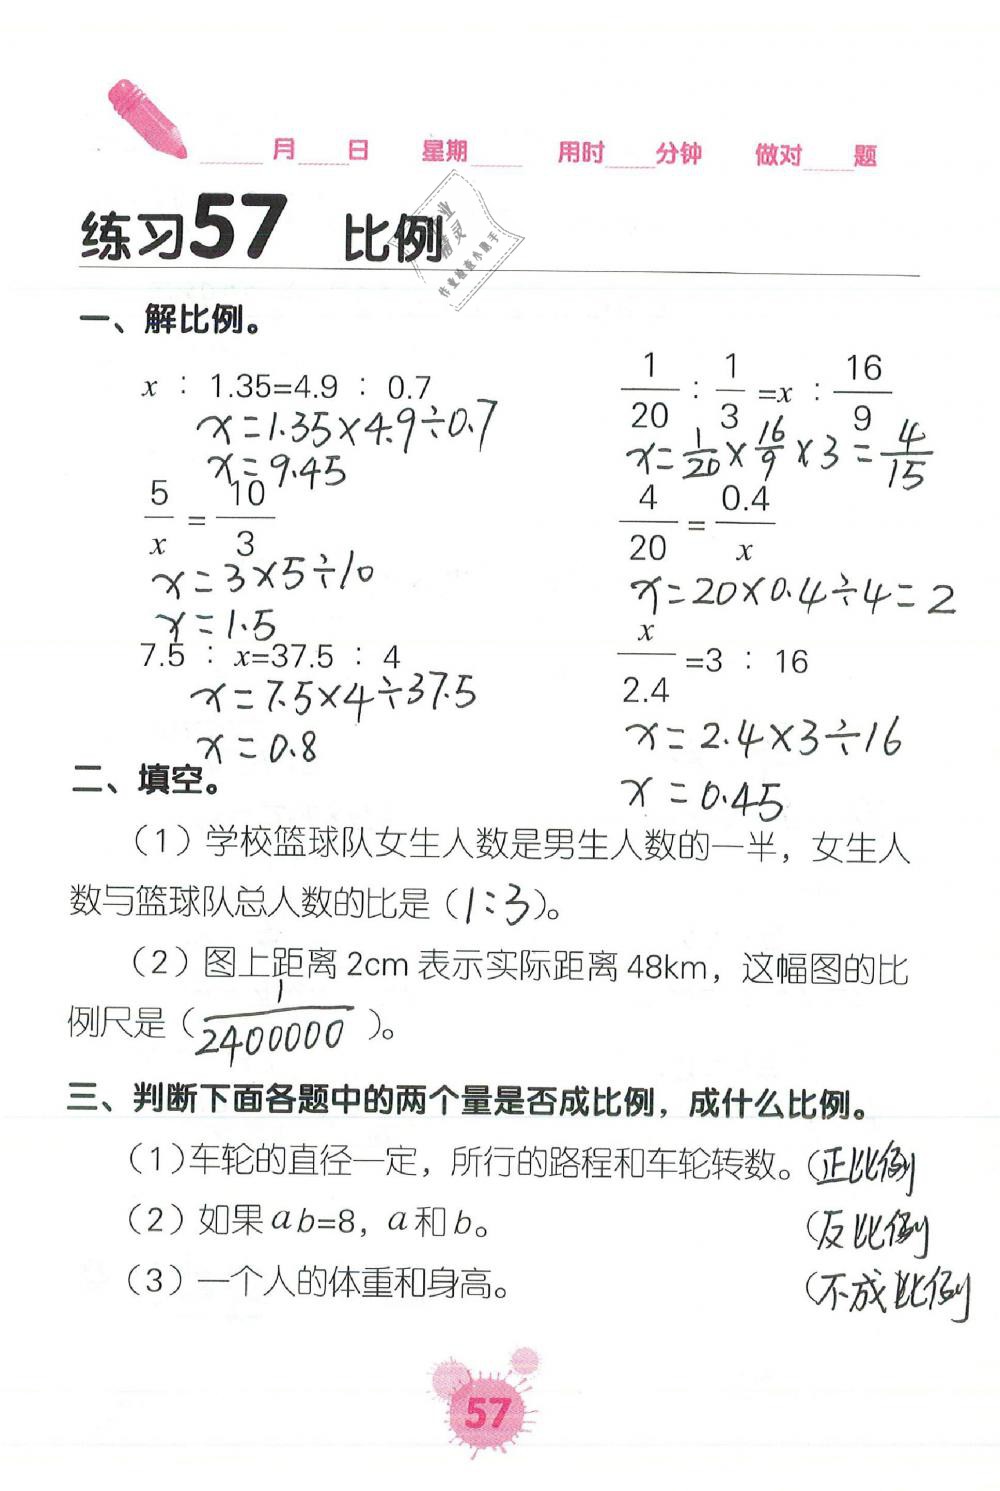 ____月____日 星期____ 用时____分钟 做对____题
练习57 比例
作业精灵
作业检查小助手
一、解比例。
x : 1.35=4.9 : 0.7
x=1.35×4.9÷0.7
x=9.45
1/20 : 1/3 =x : 16/9
x=1/20×16/9×3=4/15
5/x = 10/3
x=3×5÷10
x=1.5
4/20 = 0.4/x
x=20×0.4÷4=2
7.5 : x=37.5 : 4
x=7.5×4÷37.5
x=0.8
x/2.4 =3 : 16
x=2.4×3÷16
x=0.45
二、填空。
（1）学校篮球队女生人数是男生人数的一半，女生人
数与篮球队总人数的比是（1:3）。
（2）图上距离2cm表示实际距离48km，这幅图的比
例尺是（1/2400000）。
三、判断下面各题中的两个量是否成比例，成什么比例。
（1）车轮的直径一定，所行的路程和车轮转数。（正比例
（2）如果ab=8，a和b。（反比例
（3）一个人的体重和身高。（不成比例
57